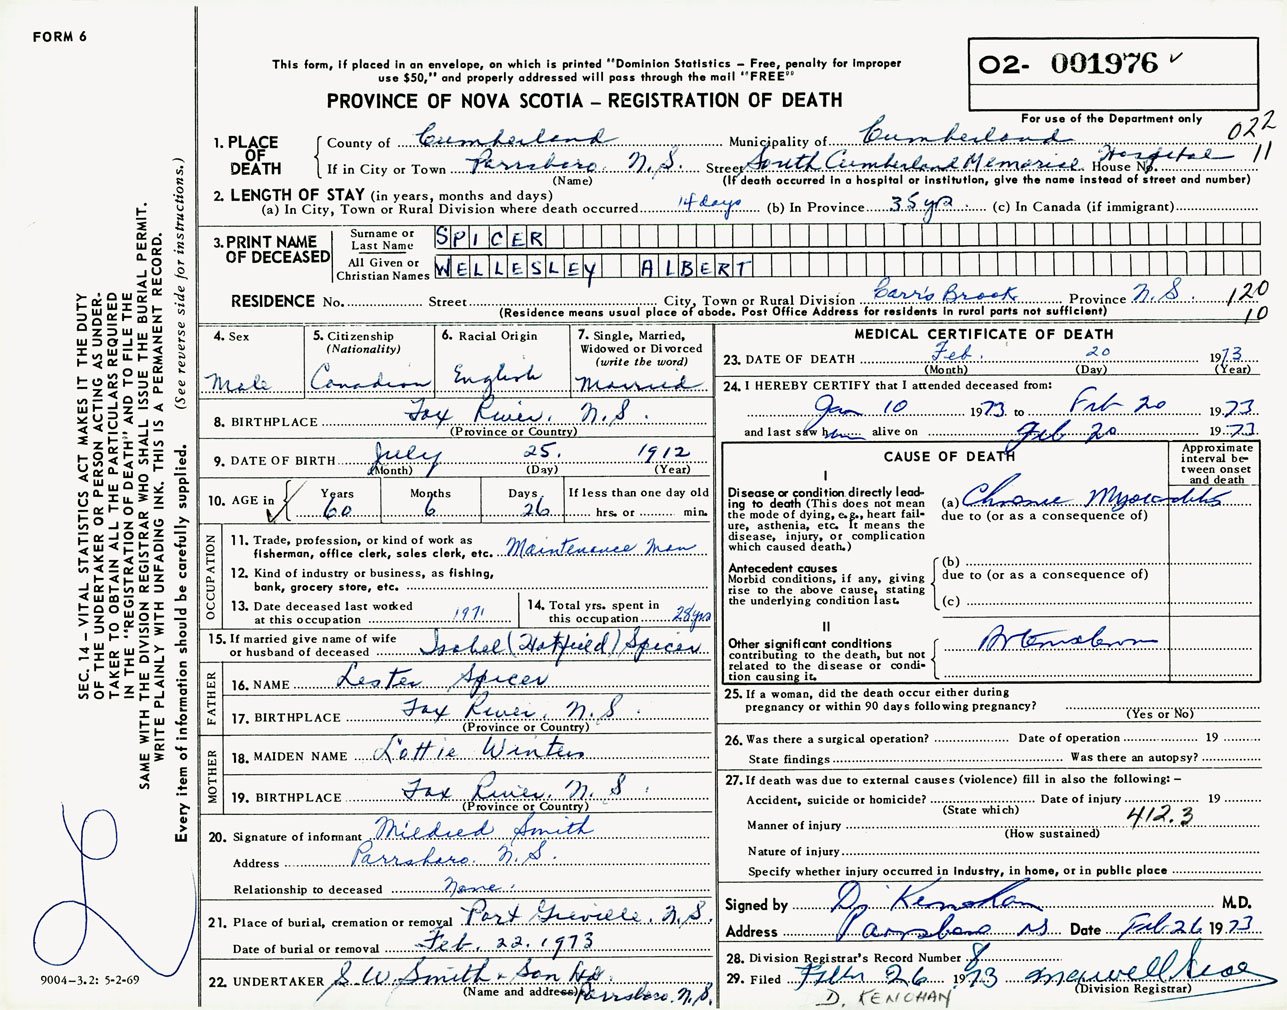 FORM 6
This form, if placed in an envelope, on which is printed "Dominion Statistics – Free, penalty for improper
use $50," and properly addressed will pass through the mail "FREE"
PROVINCE OF NOVA SCOTIA – REGISTRATION OF DEATH
O2- 001976
For use of the Department only
022
11
1. PLACE OF DEATH
County of Cumberland Municipality of Cumberland
If in City or Town Parrsboro. N.S. Street South Cumberland Memorial Hospital House No.
(Name) (If death occurred in a hospital or institution, give the name instead of street and number)
2. LENGTH OF STAY (in years, months and days)
(a) In City, Town or Rural Division where death occurred 14 days (b) In Province 35 yrs (c) In Canada (if immigrant)
3. PRINT NAME OF DECEASED
Surname or Last Name SPICER
All Given or Christian Names WELLESLEY ALBERT
RESIDENCE No. Street City, Town or Rural Division Carr's Brook Province N.S. 120
(Residence means usual place of abode. Post Office Address for residents in rural parts not sufficient) 10
4. Sex Male
5. Citizenship (Nationality) Canadian
6. Racial Origin English
7. Single, Married, Widowed or Divorced (write the word) Married
8. BIRTHPLACE Fox River. N.S.
(Province or Country)
9. DATE OF BIRTH July 25. 1912
(Month) (Day) (Year)
10. AGE in Years 60 Months 6 Days 26 If less than one day old hrs. or min.
OCCUPATION
11. Trade, profession, or kind of work as
fisherman, office clerk, sales clerk, etc. Maintenance Man
12. Kind of industry or business, as fishing,
bank, grocery store, etc.
13. Date deceased last worked at this occupation 1971
14. Total yrs. spent in this occupation 28 yrs
15. If married give name of wife
or husband of deceased Isabel (Hatfield) Spicer
FATHER
16. NAME Lester Spicer
17. BIRTHPLACE Fox River. N.S.
(Province or Country)
MOTHER
18. MAIDEN NAME Lottie Winters
19. BIRTHPLACE Fox River. N.S.
(Province or Country)
20. Signature of informant Mildred Smith
Address Parrsboro. N.S.
Relationship to deceased None.
21. Place of burial, cremation or removal Port Greville. N.S.
Date of burial or removal Feb. 22. 1973
22. UNDERTAKER S.W. Smith & Son Ltd
(Name and address) Parrsboro. N.S.
MEDICAL CERTIFICATE OF DEATH
23. DATE OF DEATH Feb. 20 1973
(Month) (Day) (Year)
24. I HEREBY CERTIFY that I attended deceased from:
Jan 10 1973 to Feb 20 1973
and last saw him alive on Feb 20 1973
CAUSE OF DEATH
Approximate interval between onset and death
I
Disease or condition directly lead-
ing to death (This does not mean
the mode of dying, e.g., heart fail-
ure, asthenia, etc. It means the
disease, injury, or complication
which caused death.)
(a) Chronic Myocarditis
due to (or as a consequence of)
Antecedent causes
Morbid conditions, if any, giving
rise to the above cause, stating
the underlying condition last.
(b)
due to (or as a consequence of)
(c)
II
Other significant conditions
contributing to the death, but not
related to the disease or condi-
tion causing it.
25. If a woman, did the death occur either during
pregnancy or within 90 days following pregnancy?
(Yes or No)
26. Was there a surgical operation? Date of operation 19
State findings Was there an autopsy?
27. If death was due to external causes (violence) fill in also the following: –
Accident, suicide or homicide? Date of injury 19
(State which)
Manner of injury 412.3
(How sustained)
Nature of injury
Specify whether injury occurred in industry, in home, or in public place
Signed by D. Kenohan M.D.
Address Parrsboro NS Date Feb 26 1973
28. Division Registrar's Record Number 8
29. Filed Feb 26 1973
(Division Registrar)
D. KENOHAN
SEC. 14 – VITAL STATISTICS ACT MAKES IT THE DUTY
OF THE UNDERTAKER OR PERSON ACTING AS UNDER-
TAKER TO OBTAIN ALL THE PARTICULARS REQUIRED
IN THE "REGISTRATION OF DEATH" AND TO FILE THE
SAME WITH THE DIVISION REGISTRAR WHO SHALL ISSUE THE BURIAL PERMIT.
WRITE PLAINLY WITH UNFADING INK. THIS IS A PERMANENT RECORD.
Every item of information should be carefully supplied. (See reverse side for instructions.)
9004-3.2: 5-2-69